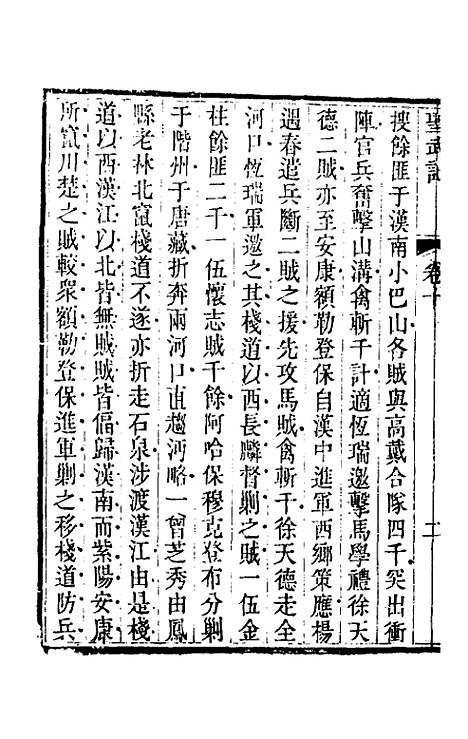 聖武記
卷十
二
搜餘匪于漢南小巴山各賊與高戴合隊四千突出衝
陣官兵奮擊山溝禽斬千計適恆瑞邀擊馬學禮徐天
德二賊亦至安康額勒登保自漢中進軍西鄉策應楊
遇春遣兵斷二賊之援先攻馬賊禽斬千徐天德走全
河口恆瑞軍邀之其棧道以西長麟督剿之賊一伍金
柱餘匪二千一伍懷志賊千餘阿哈保穆克登布分剿
于階州于唐藏折奔兩河口直趨河略一曾芝秀由鳳
縣老林北竄棧道不遂亦折走石泉涉渡漢江由是棧
道以西漢江以北皆無賊賊皆偪歸漢南而紫陽安康
所竄川楚之賊較衆額勒登保進軍剿之移棧道防兵